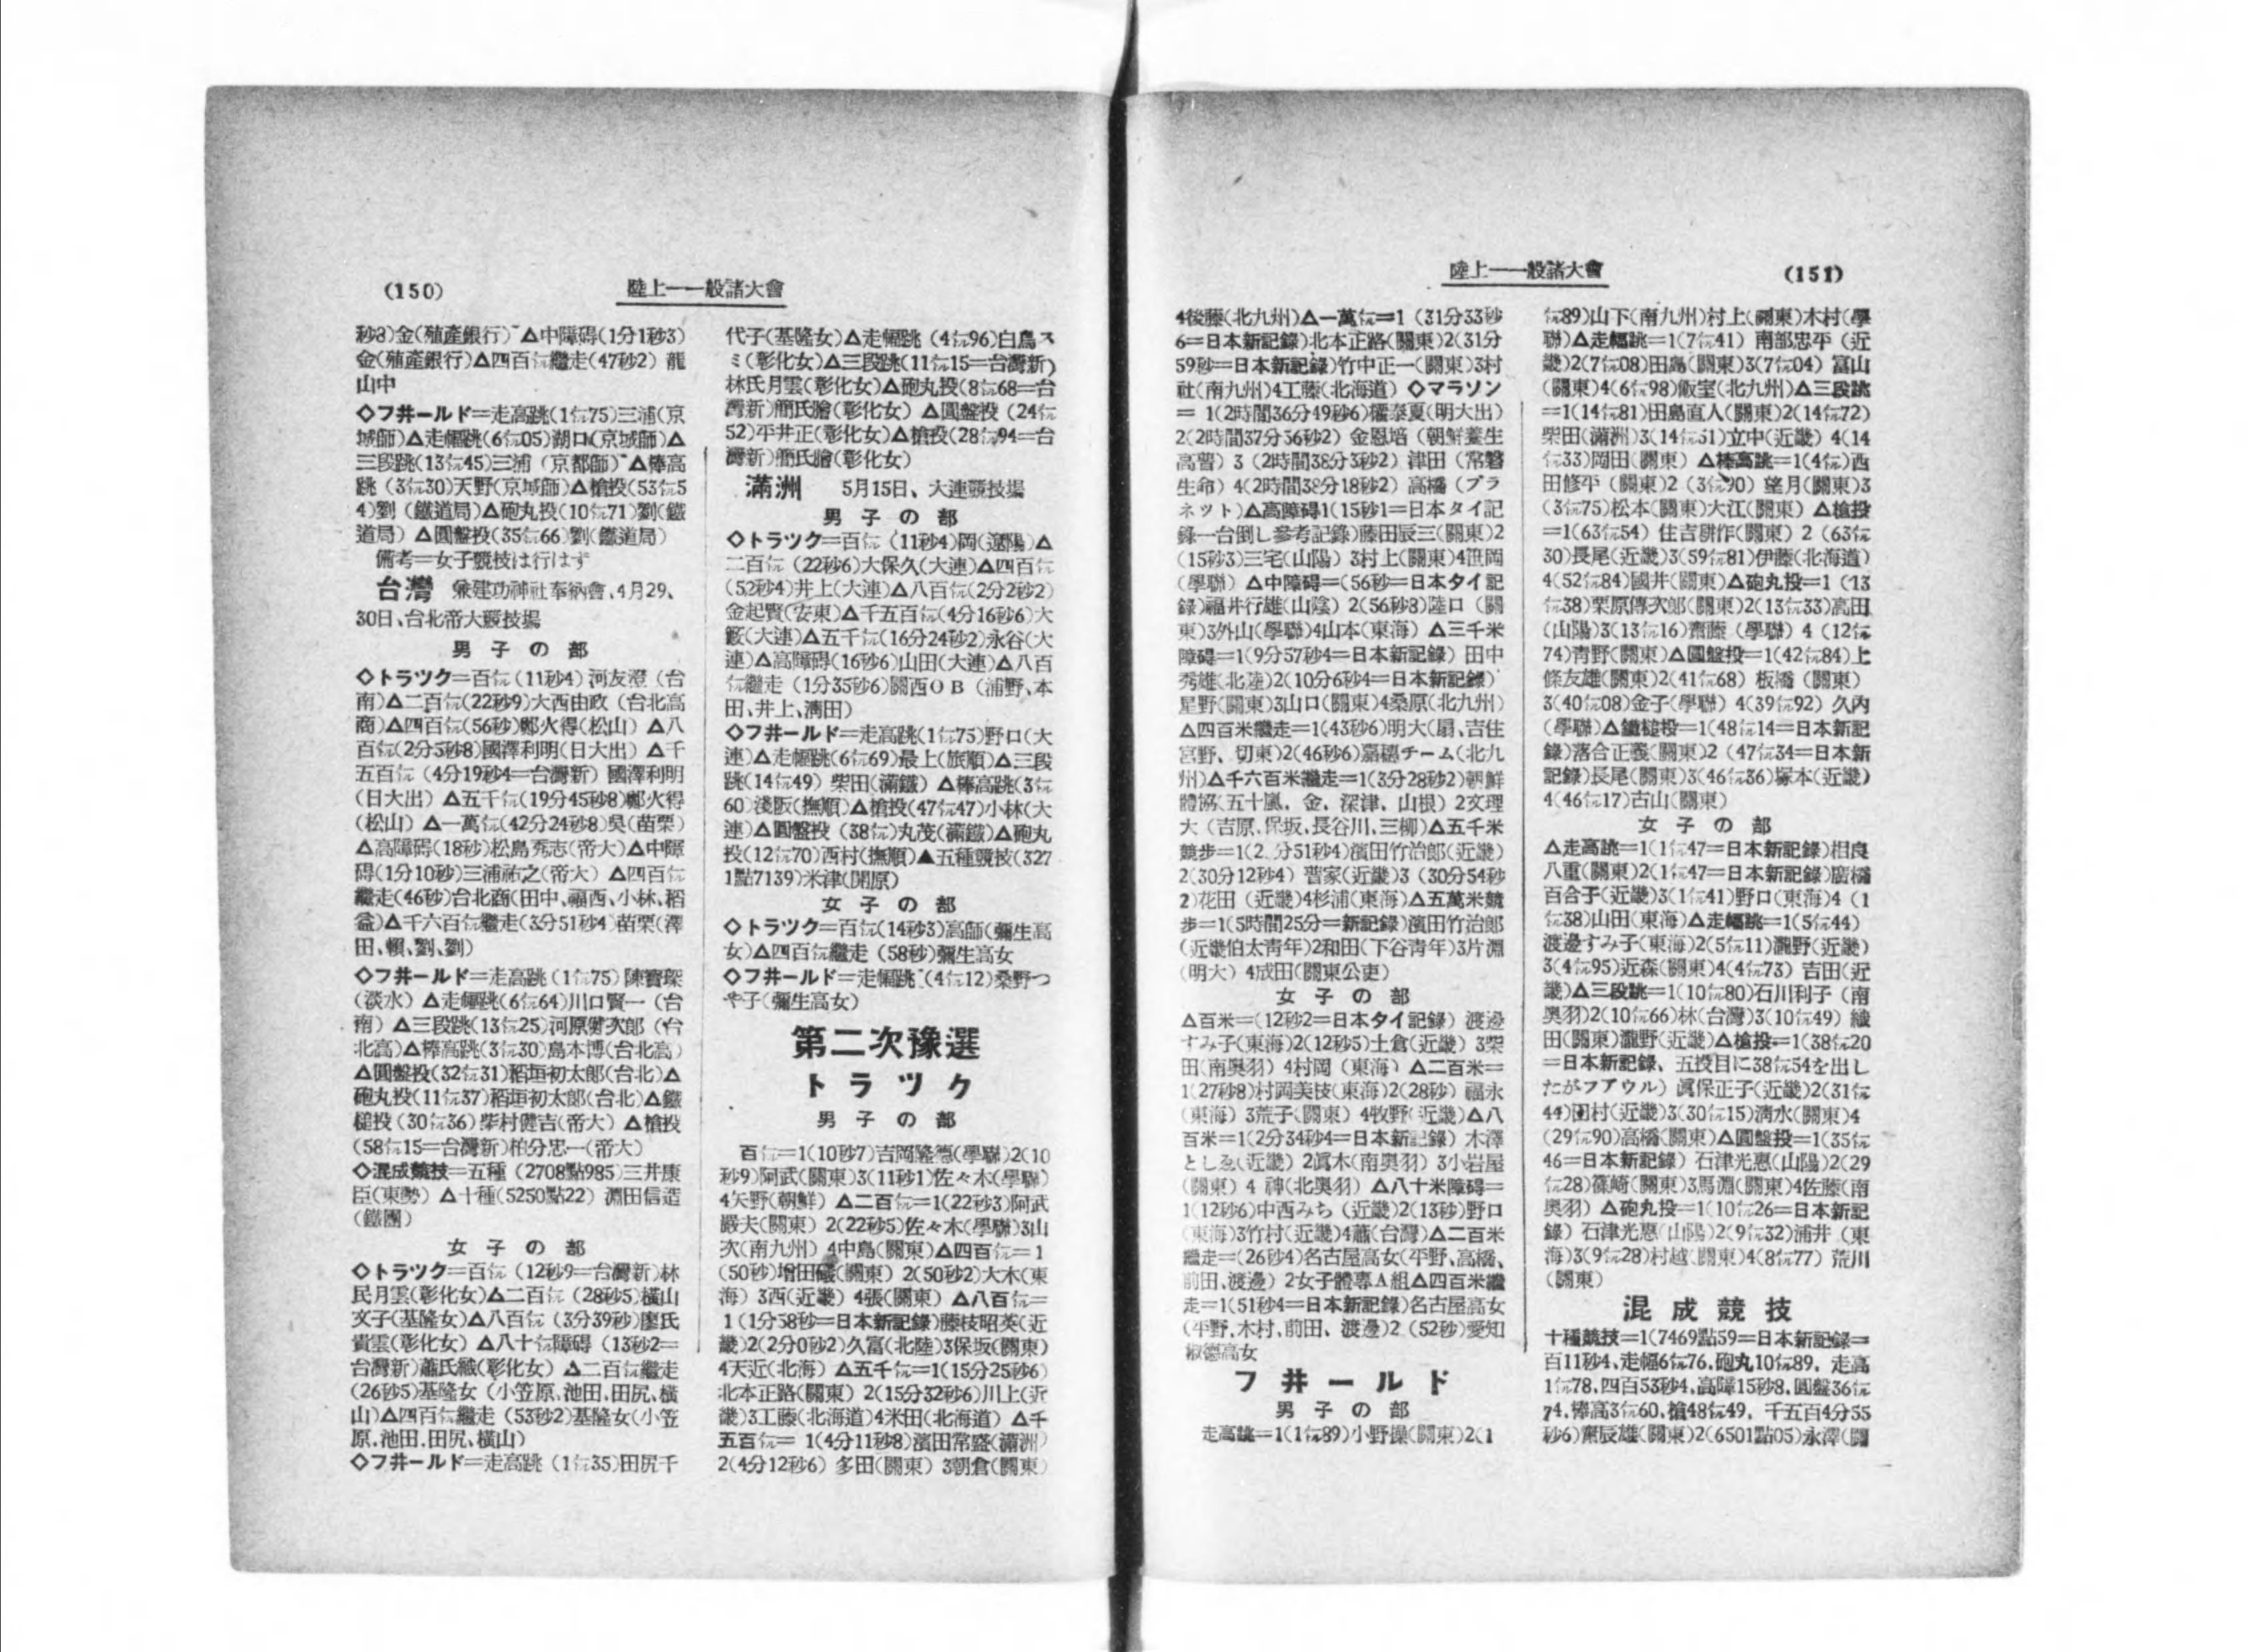 (150)
陸上――一般諸大會
秒8)金(殖產銀行) △中障碍(1分1秒3)
金(殖產銀行)△四百㍍繼走(47秒2) 龍
山中
◇フ井ールド=走高跳(1㍍75)三浦(京
城師)△走幅跳(6㍍05)湖口(京城師)△
三段跳(13㍍45)三浦(京都師) △棒高
跳(3㍍30)天野(京城師)△槍投(53㍍5
4)劉(鐵道局)△砲丸投(10㍍71)劉(鐵
道局) △圓盤投(35㍍66)劉(鐵道局)
備考=女子競技は行はず
台灣 兼建功神社奉納會、4月29、
30日、台北帝大競技場
男子の部
◇トラツク=百㍍(11秒4) 河友澄(台
南)△二百㍍(22秒9)大西由政(台北高
商)△四百㍍(56秒)鄭火得(松山) △八
百㍍(2分5秒8)國澤利明(日大出) △千
五百㍍(4分19秒4=台灣新) 國澤利明
(日大出) △五千㍍(19分45秒8)鄭火得
(松山) △一萬㍍(42分24秒8)吳(苗栗)
△高障碍(18秒)松島秀志(帝大)△中障
碍(1分10秒)三浦祐之(帝大) △四百㍍
繼走(46秒)台北商(田中、福西、小林、稻
益)△千六百㍍繼走(3分51秒4)苗栗(澤
田、賴、劉、劉)
◇フ井ールド=走高跳(1㍍75)陳寶琛
(淡水) △走幅跳(6㍍64)川口賢一(台
南) △三段跳(13㍍25)河原努次郎(台
北高)△棒高跳(3㍍30)島本博(台北高)
△圓盤投(32㍍31)稻垣初太郎(台北)△
砲丸投(11㍍37)稻垣初太郎(台北)△鐵
槌投(30㍍36)柴村健吉(帝大) △槍投
(58㍍15=台灣新)柏分忠一(帝大)
◇混成競技=五種(2708點985)三井康
臣(東勢) △十種(5250點22) 淵田信造
(鐵團)
女子の部
◇トラツク=百㍍(12秒9=台灣新)林
民月雲(彰化女)△二百㍍(28秒5)橫山
文子(基隆女)△八百㍍(3分39秒)廖氏
貴雲(彰化女) △八十㍍障碍(13秒2=
台灣新)蕭氏織(彰化女) △二百㍍繼走
(26秒5)基隆女(小笠原、池田、田尻、橫
山)△四百㍍繼走(53秒2)基隆女(小笠
原、池田、田尻、橫山)
◇フ井ールド=走高跳(1㍍35)田尻千
代子(基隆女)△走幅跳(4㍍96)白鳥ス
ミ(彰化女)△三段跳(11㍍15=台灣新)
林氏月雲(彰化女)△砲丸投(8㍍68=台
灣新)簡氏膾(彰化女) △圓盤投(24㍍
52)平井正(彰化女)△槍投(28㍍94=台
灣新)簡氏膾(彰化女)
滿洲 5月15日、大連競技場
男子の部
◇トラツク=百㍍(11秒4)岡(遼陽)△
二百㍍(22秒6)大保久(大連)△四百㍍
(52秒4)井上(大連)△八百㍍(2分2秒2)
金起賢(安東)△千五百㍍(4分16秒6)大
籔(大連)△五千㍍(16分24秒2)永谷(大
連)△高障碍(16秒6)山田(大連)△八百
㍍繼走(1分35秒6)關西OB(浦野、本
田、井上、溝田)
◇フ井ールド=走高跳(1㍍75)野口(大
連)△走幅跳(6㍍69)最上(旅順)△三段
跳(14㍍49) 柴田(滿鐵) △棒高跳(3㍍
60)淺阪(撫順)△槍投(47㍍47)小林(大
連)△圓盤投(38㍍)丸茂(滿鐵)△砲丸
投(12㍍70)西村(撫順)▲五種競技(327
1點7139)米津(開原)
女子の部
◇トラツク=百㍍(14秒3)高師(彌生高
女)△四百㍍繼走(58秒)彌生高女
◇フ井ールド=走幅跳(4㍍12)桑野つ
や子(彌生高女)
第二次豫選
トラツク
男子の部
百㍍=1(10秒7)吉岡隆德(學聯)2(10
秒9)阿武(關東)3(11秒1)佐々木(學聯)
4矢野(朝鮮) △二百㍍=1(22秒3)阿武
嚴夫(關東) 2(22秒5)佐々木(學聯)3山
次(南九州) 4中島(關東)△四百㍍=1
(50秒)增田礒(關東) 2(50秒2)大木(東
海) 3西(近畿) 4張(關東) △八百㍍=
1(1分58秒=日本新記錄)藤枝昭英(近
畿)2(2分0秒2)久富(北陸)3保坂(關東)
4天近(北海) △五千㍍=1(15分25秒6)
北本正路(關東) 2(15分32秒6)川上(近
畿)3工藤(北海道)4米田(北海道) △千
五百㍍= 1(4分11秒8)濱田常盛(滿洲)
2(4分12秒6) 多田(關東) 3朝倉(關東)
陸上――一般諸大會
(151)
4後藤(北九州)△一萬㍍=1(31分33秒
6=日本新記錄)北本正路(關東)2(31分
59秒=日本新記錄)竹中正一(關東)3村
社(南九州)4工藤(北海道) ◇マラソン
= 1(2時間36分49秒6)權泰夏(明大出)
2(2時間37分56秒2) 金恩培(朝鮮養生
高普) 3(2時間38分3秒2) 津田(常磐
生命) 4(2時間38分18秒2) 高橋(プラ
ネツト)△高障碍1(15秒1=日本タイ記
錄―台倒し參考記錄)藤田辰三(關東)2
(15秒3)三宅(山陽) 3村上(關東)4笹岡
(學聯) △中障碍=(56秒=日本タイ記
錄)福井行雄(山陰) 2(56秒8)陸口(關
東)3外山(學聯)4山本(東海) △三千米
障碍=1(9分57秒4=日本新記錄) 田中
秀雄(北陸)2(10分6秒4=日本新記錄)
星野(關東)3山口(關東)4桑原(北九州)
△四百米繼走=1(43秒6)明大(扇、吉住
宮野、切東)2(46秒6)嘉穗チーム(北九
州)△千六百米繼走=1(3分28秒2)朝鮮
體協(五十嵐、金、深津、山根) 2文理
大(吉原、保坂、長谷川、三柳)△五千米
競步=1(2 分51秒4)濱田竹治郎(近畿)
2(30分12秒4) 菅家(近畿)3(30分54秒
2)花田(近畿)4杉浦(東海)△五萬米競
步=1(5時間25分=新記錄)濱田竹治郎
(近畿伯太靑年)2和田(下谷靑年)3片淵
(明大) 4成田(關東公吏)
女子の部
△百米=(12秒2=日本タイ記錄) 渡邊
すみ子(東海)2(12秒5)土倉(近畿) 3柴
田(南奧羽) 4村岡(東海) △二百米=
1(27秒8)村岡美枝(東海)2(28秒) 福永
(東海) 3荒子(關東) 4牧野(近畿)△八
百米=1(2分34秒4=日本新記錄) 木澤
としゑ(近畿) 2眞木(南奧羽) 3小岩屋
(關東) 4 神(北奧羽) △八十米障碍=
1(12秒6)中西みち(近畿)2(13秒)野口
(東海)3竹村(近畿)4蕭(台灣)△二百米
繼走=(26秒4)名古屋高女(平野、高橋、
前田、渡邊) 2女子體專A組△四百米繼
走=1(51秒4=日本新記錄)名古屋高女
(平野、木村、前田、渡邊)2(52秒)愛知
椒德高女
フ井ールド
男子の部
走高跳=1(1㍍89)小野操(關東)2(1
㍍89)山下(南九州)村上(關東)木村(學
聯)△走幅跳=1(7㍍41) 南部忠平(近
畿)2(7㍍08)田島(關東)3(7㍍04) 富山
(關東)4(6㍍98)飯室(北九州)△三段跳
=1(14㍍81)田島直人(關東)2(14㍍72)
柴田(滿洲)3(14㍍51)立中(近畿) 4(14
㍍33)岡田(關東) △棒高跳=1(4㍍)西
田修平(關東)2(3㍍90) 望月(關東)3
(3㍍75)松本(關東)大江(關東) △槍投
=1(63㍍54) 住吉耕作(關東) 2(63㍍
30)長尾(近畿)3(59㍍81)伊藤(北海道)
4(52㍍84)國井(關東)△砲丸投=1(13
㍍38)栗原傳次郎(關東)2(13㍍33)高田
(山陽)3(13㍍16)齋藤(學聯) 4(12㍍
74)靑野(關東)△圓盤投=1(42㍍84)上
條友雄(關東)2(41㍍68) 板橋(關東)
3(40㍍08)金子(學聯) 4(39㍍92) 久內
(學聯)△鐵槌投=1(48㍍14=日本新記
錄)落合正義(關東)2(47㍍34=日本新
記錄)長尾(關東)3(46㍍36)塚本(近畿)
4(46㍍17)古山(關東)
女子の部
△走高跳=1(1㍍47=日本新記錄)相良
八重(關東)2(1㍍47=日本新記錄)廣橋
百合子(近畿)3(1㍍41)野口(東海)4(1
㍍38)山田(東海)△走幅跳=1(5㍍44)
渡邊すみ子(東海)2(5㍍11)瀧野(近畿)
3(4㍍95)近森(關東)4(4㍍73) 吉田(近
畿)△三段跳=1(10㍍80)石川利子(南
奧羽)2(10㍍66)林(台灣)3(10㍍49) 織
田(關東)瀧野(近畿)△槍投=1(38㍍20
=日本新記錄、五投目に38㍍54を出し
たがフアウル) 眞保正子(近畿)2(31㍍
44)田村(近畿)3(30㍍15)淸水(關東)4
(29㍍90)高橋(關東)△圓盤投=1(35㍍
46=日本新記錄) 石津光惠(山陽)2(29
㍍28)篠崎(關東)3馬淵(關東)4佐藤(南
奧羽) △砲丸投=1(10㍍26=日本新記
錄) 石津光惠(山陽)2(9㍍32)浦井(東
海)3(9㍍28)村越(關東)4(8㍍77) 荒川
(關東)
混成競技
十種競技=1(7469點59=日本新記錄=
百11秒4、走幅6㍍76、砲丸10㍍89、走高
1㍍78、四百53秒4、高障15秒8、圓盤36㍍
74、棒高3㍍60、槍48㍍49、千五百4分55
秒6)齋辰雄(關東)2(6501點05)永澤(關